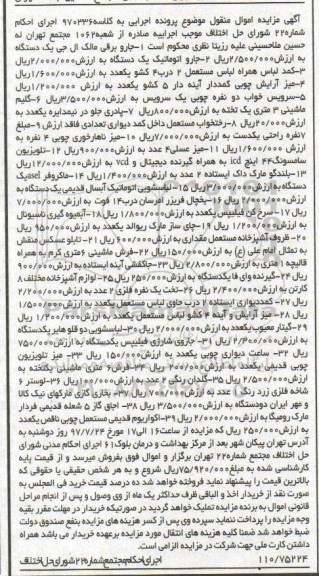 آگهی مزایده اموال منقول موضوع پرونده اجرایی به کلاسه ۹۷۰۳۳۶ اجرای احکام
شماره۲۲ شورای حل اختلاف موجب اجراییه صادره از شعبه ۱۰۶۲ مجتمع تهران له
حسین ملاحسینی علیه رزیتا نظری محکوم است ۱-جارو برقی مالک ال جی یک دستگاه
به ارزش ۲/۵۰۰/۰۰۰ریال ۲-جارو اتوماتیک یک دستگاه به ارزش ۲/۰۰۰/۰۰۰ریال
۳-کمد لباس همراه لباس مستعمل ۲ درب۴ کشو یکعدد به ارزش ۱/۶۰۰/۰۰۰ریال
۴-میز آرایش چوبی کمددار آینه دار ۵ کشو یکعدد به ارزش ۱/۲۰۰/۰۰۰ریال
۵-سرویس خواب دو نفره چوبی یک سرویس به ارزش ۳/۵۰۰/۰۰۰ریال ۶-گلیم
ماشینی ۳ متری یک تخته به ارزش ۸۰۰/۰۰۰ریال ۷-پادری جلو در نیمدایره یکعدد به
ارزش ۲۰/۰۰۰ریال ۸-رختخواب مستعمل داخل کمد دیواری تعدادی فاقد ارزش ۹-مبلغ
۷نفره راحتی یکدست به ارزش ۷/۰۰۰/۰۰۰ریال ۱۰-میز ناهارخوری چوبی ۴ نفره به
ارزش ۱/۶۰۰/۰۰۰ریال ۱۱-میز عسلی۴ عدد به ارزش ۹۰۰/۰۰۰ریال ۱۲-تلویزیون
سامسونگ۴۴ اینچ lcd به همراه گیرنده دیجیتال و vcd به ارزش ۱۲/۰۰۰/۰۰۰ریال
۱۳-بلندگو مارک داک ایستاده ۲ عدد به ارزش ۱/۴۰۰/۰۰۰ریال ۱۴-ماکروفر aselیک
دستگاه به ارزش ۳/۰۰۰/۰۰۰ریال ۱۵-لباسشویی اتوماتیک آبسال قدیمی یک دستگاه به
ارزش ۶/۰۰۰/۰۰۰ریال ۱۶-یخچال فریزر امرسان درب۱۴ فوت به ارزش ۷/۰۰۰/۰۰۰
ریال ۱۷-سرخ کن فیلیپس یکعدد به ارزش ۱/۸۰۰/۰۰۰ریال ۱۸-آبمیوه گیری ناسیونال
به ارزش ۱/۲۰۰/۰۰۰ ریال ۱۹-چای ساز مارک ریوالد یکعدد به ارزش ۹۵۰/۰۰۰ ریال
۲۰-ظروف آشپزخانه مستعمل مقداری به ارزش ۶۰۰/۰۰۰ریال ۲۱-تابلو عسکس منقش
به تمثال امام علی (ع) به ارزش ۱۵۰/۰۰۰ریال ۲۲-فرش ماشینی ۶متری کرم به همراه
قالیچه ۱متری به ارزش ۲/۸۰۰/۰۰۰ریال ۲۳-جاکفشی آینه ایستاده به ارزش ۹۰۰/۰۰۰
ریال ۲۴-گیرنده وای فا یکدستگاه به ارزش ۲۵۰/۰۰۰ریال ۲۵-لوازم آشپزخانه مختلف ۸
کارتن به ارزش ۲/۴۰۰/۰۰۰ریال ۲۶-تخت یک نفره فلزی ۲ عدد به ارزش ۲/۲۰۰/۰۰۰
ریال ۲۷-کمددیواری ایستاده ۲ درب حاوی لباس مستعمل یکعدد به ارزش ۱/۵۰۰/۰۰۰
ریال ۲۸-میز آرایش و آینه ۴ کشو لباس مستعمل یکعدد به ارزش ۱/۲۰۰/۰۰۰ریال
۲۹-گیتار معیوب یکعدد به ارزش ۲/۰۰۰/۰۰۰ریال ۳۰-لباسشویی دو قلو هایر یکدستگاه
به ارزش ۲/۳۰۰/۰۰۰ریال ۳۱-جاروی شارژی فیلیپس یکدستگاه به ارزش ۷۵۰/۰۰۰
ریال ۳۲-ساعت دیواری چوبی یکعدد به ارزش ۱۵۰/۰۰۰ریال ۳۳-میز تلویزیون
چوبی قدیمی یکعدد به ارزش ۲۰۰/۰۰۰ریال ۳۴-فرش۶ متری ماشینی یکتخته به
ارزش ۲/۵۰۰/۰۰۰ریال ۳۵-گلدان رنگی ۲ عدد به ارزش ۱۶۰/۰۰۰ریال ۳۶-لوستر ۶
شاخه فلزی زرد رنگ ۲ عدد به ارزش ۷۰۰/۰۰۰ریال ۳۷-بخاری گازی مارکهای نیک کالا
و مهر ایران دودستگاه به ارزش ۳/۵۰۰/۰۰۰ریال ۳۸-اجاق گاز ۵ شعله قدیمی فردار
مارک رومیگا به ارزش ۲/۰۰۰/۰۰۰ریال ۳۹-آکواریوم قدیمی مستعمل چوبی ناقص یکعدد
به ارزش ۲۵۰/۰۰۰ ریال که مزایده از ساعت۱۶ الی۱۷ مورخ ۹۷/۷/۲۴ روز دوشنبه به
آدرس تهران پیکان شهر بعد از مرکز بهداشت و درمان بلوک۶۱ اجرای احکام مدنی شورای
حل اختلاف مجتمع شماره۲۲ تهران برگزار و اموال فوق بفروش میرسد و از قیمت پایه
کارشناسی شده به مبلغ ۷۵/۹۲۰/۰۰۰ریال شروع و به هر شخص حقیقی یا حقوقی که
بالاترین قیمت را پیشنهاد نماید فروخته خواهد شد ده درصد قیمت خرید فی المجلس به
صورت نقد از خریدار اخذ و الباقی ظرف حداکثر یک ماه از وی وصول و پس از انجام مراحل
قانونی اموال به برنده مزایده تملیک خواهد گردید در صورتیکه خریدار در مهلت مقرر بقیه
وجه مزایده را پرداخت ننماید سپرده وی پس از کسر هزینه های مزایده بنفع صندوق دولت
ضبط خواهد شد ضمنا کلیه هزینه های انتقال مورد مزایده برعهده خریدار می باشد همراه
داشتن کارت ملی جهت شرکت در مزایده الزامی است.
۱۱۰/۷۵۲۲۴ اجرای احکام مجتمع شماره ۲۲ شورای حل اختلاف